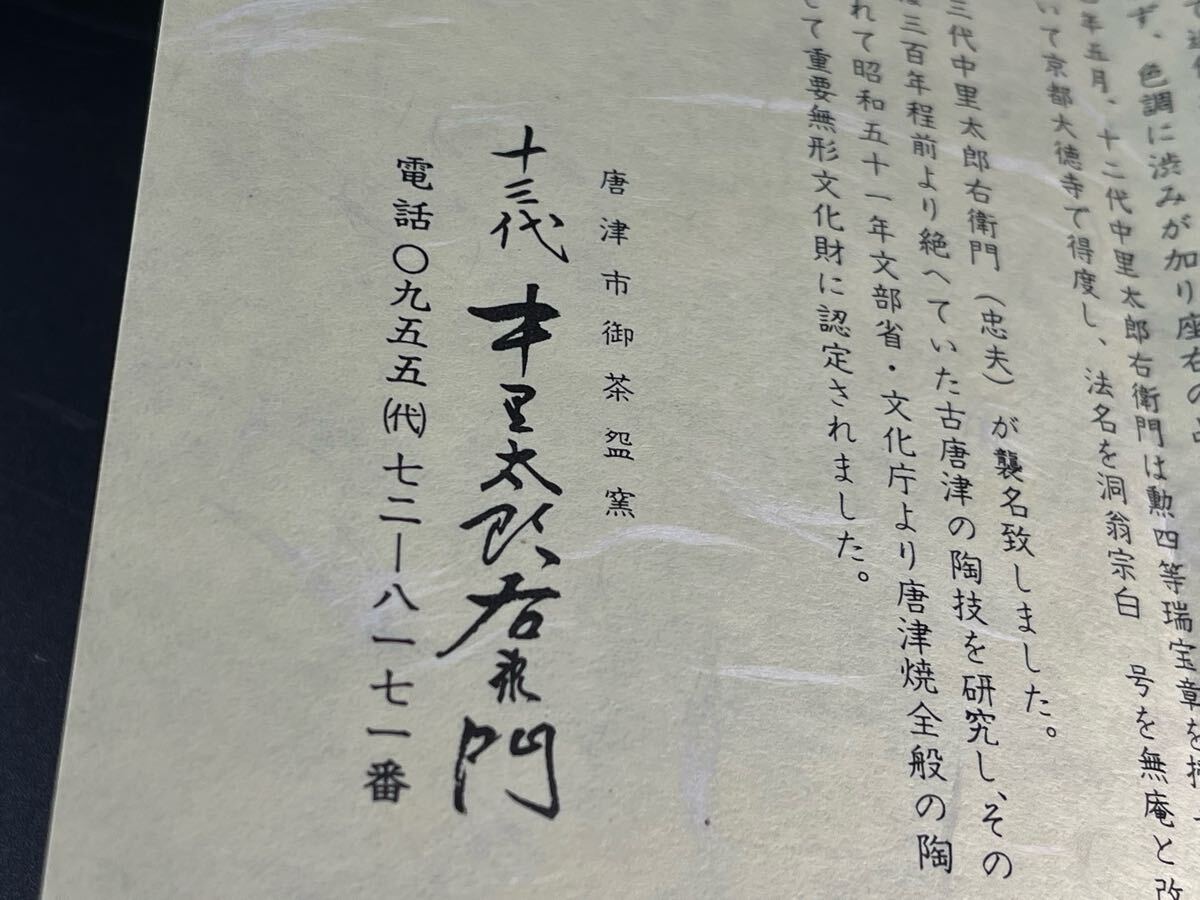 ず、色調に渋みが加り座右の
年五月、十二代中里太郎右衛門は勲四等瑞宝章を
いて京都大徳寺で得度し、法名を洞翁宗白 号を無庵と改
三代中里太郎右衛門（忠夫）が襲名致しました。
は三百年程前より絶へていた古唐津の陶技を研究し、その
れて昭和五十一年文部省・文化庁より唐津焼全般の陶
して重要無形文化財に認定されました。
唐津市御茶盌窯
十三代 中里太郎右衛門
電話〇九五五(代)七二ー八一七一番